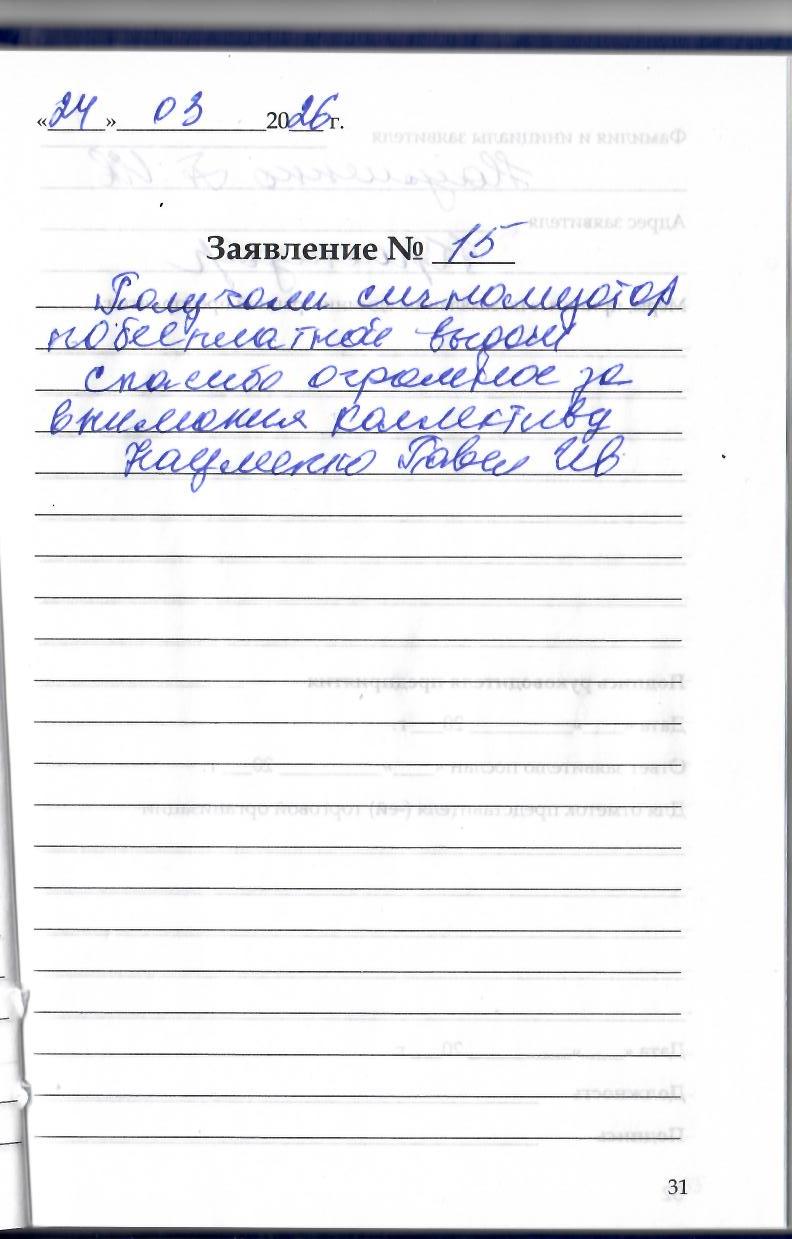 «24» 03 2026 г.
Заявление № 15
Получали сигнализатор
по бесплатной выдачи
спасибо огромное за
внимания коллективу
Науменко Павел Ив
31